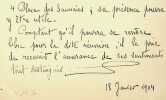 4 Place des Saussaies, sa présence pourra
y être utile.
Comptant qu'il pourra se rendre
libre pour la dite réunion, il le prie
de recevoir l'assurance de ses sentiments
tout
18 Janvier 1904